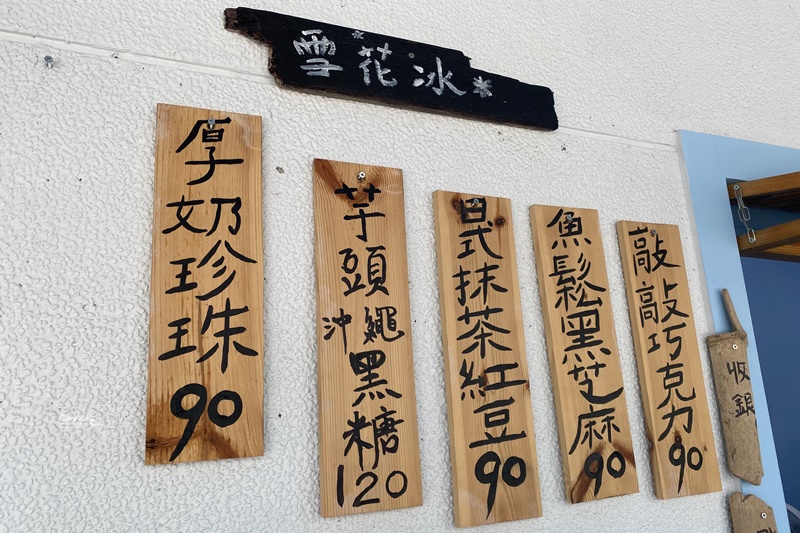 雪花冰
厚奶珍珠90
芋頭沖繩黑糖120
日式抹茶紅豆90
魚鬆黑芝麻90
敲敲巧克力90
收銀